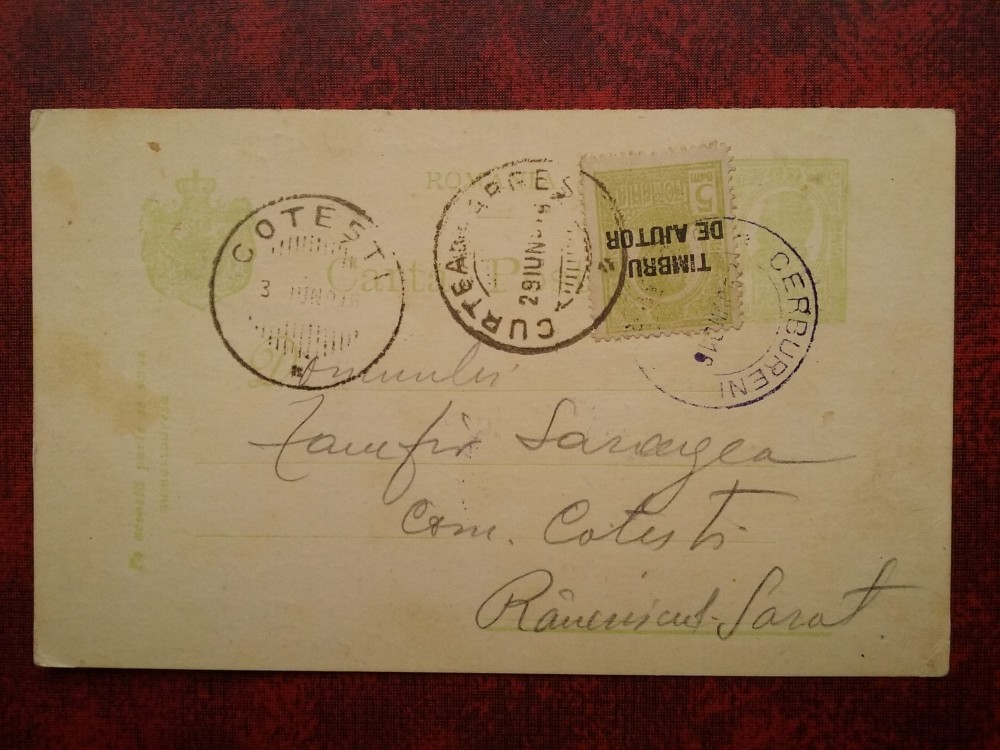 ROMANIA
Carta Pos
COTEȘTI
3 IUN 918
CURTEA ARGEȘ
29 IUN 918
5 BANI
ROMANIA
TIMBRU
DE AJUTOR
CERBURENI
918
Domnului
Zamfir Sarangea
Com. Cotesti
Râmnicul-Sarat